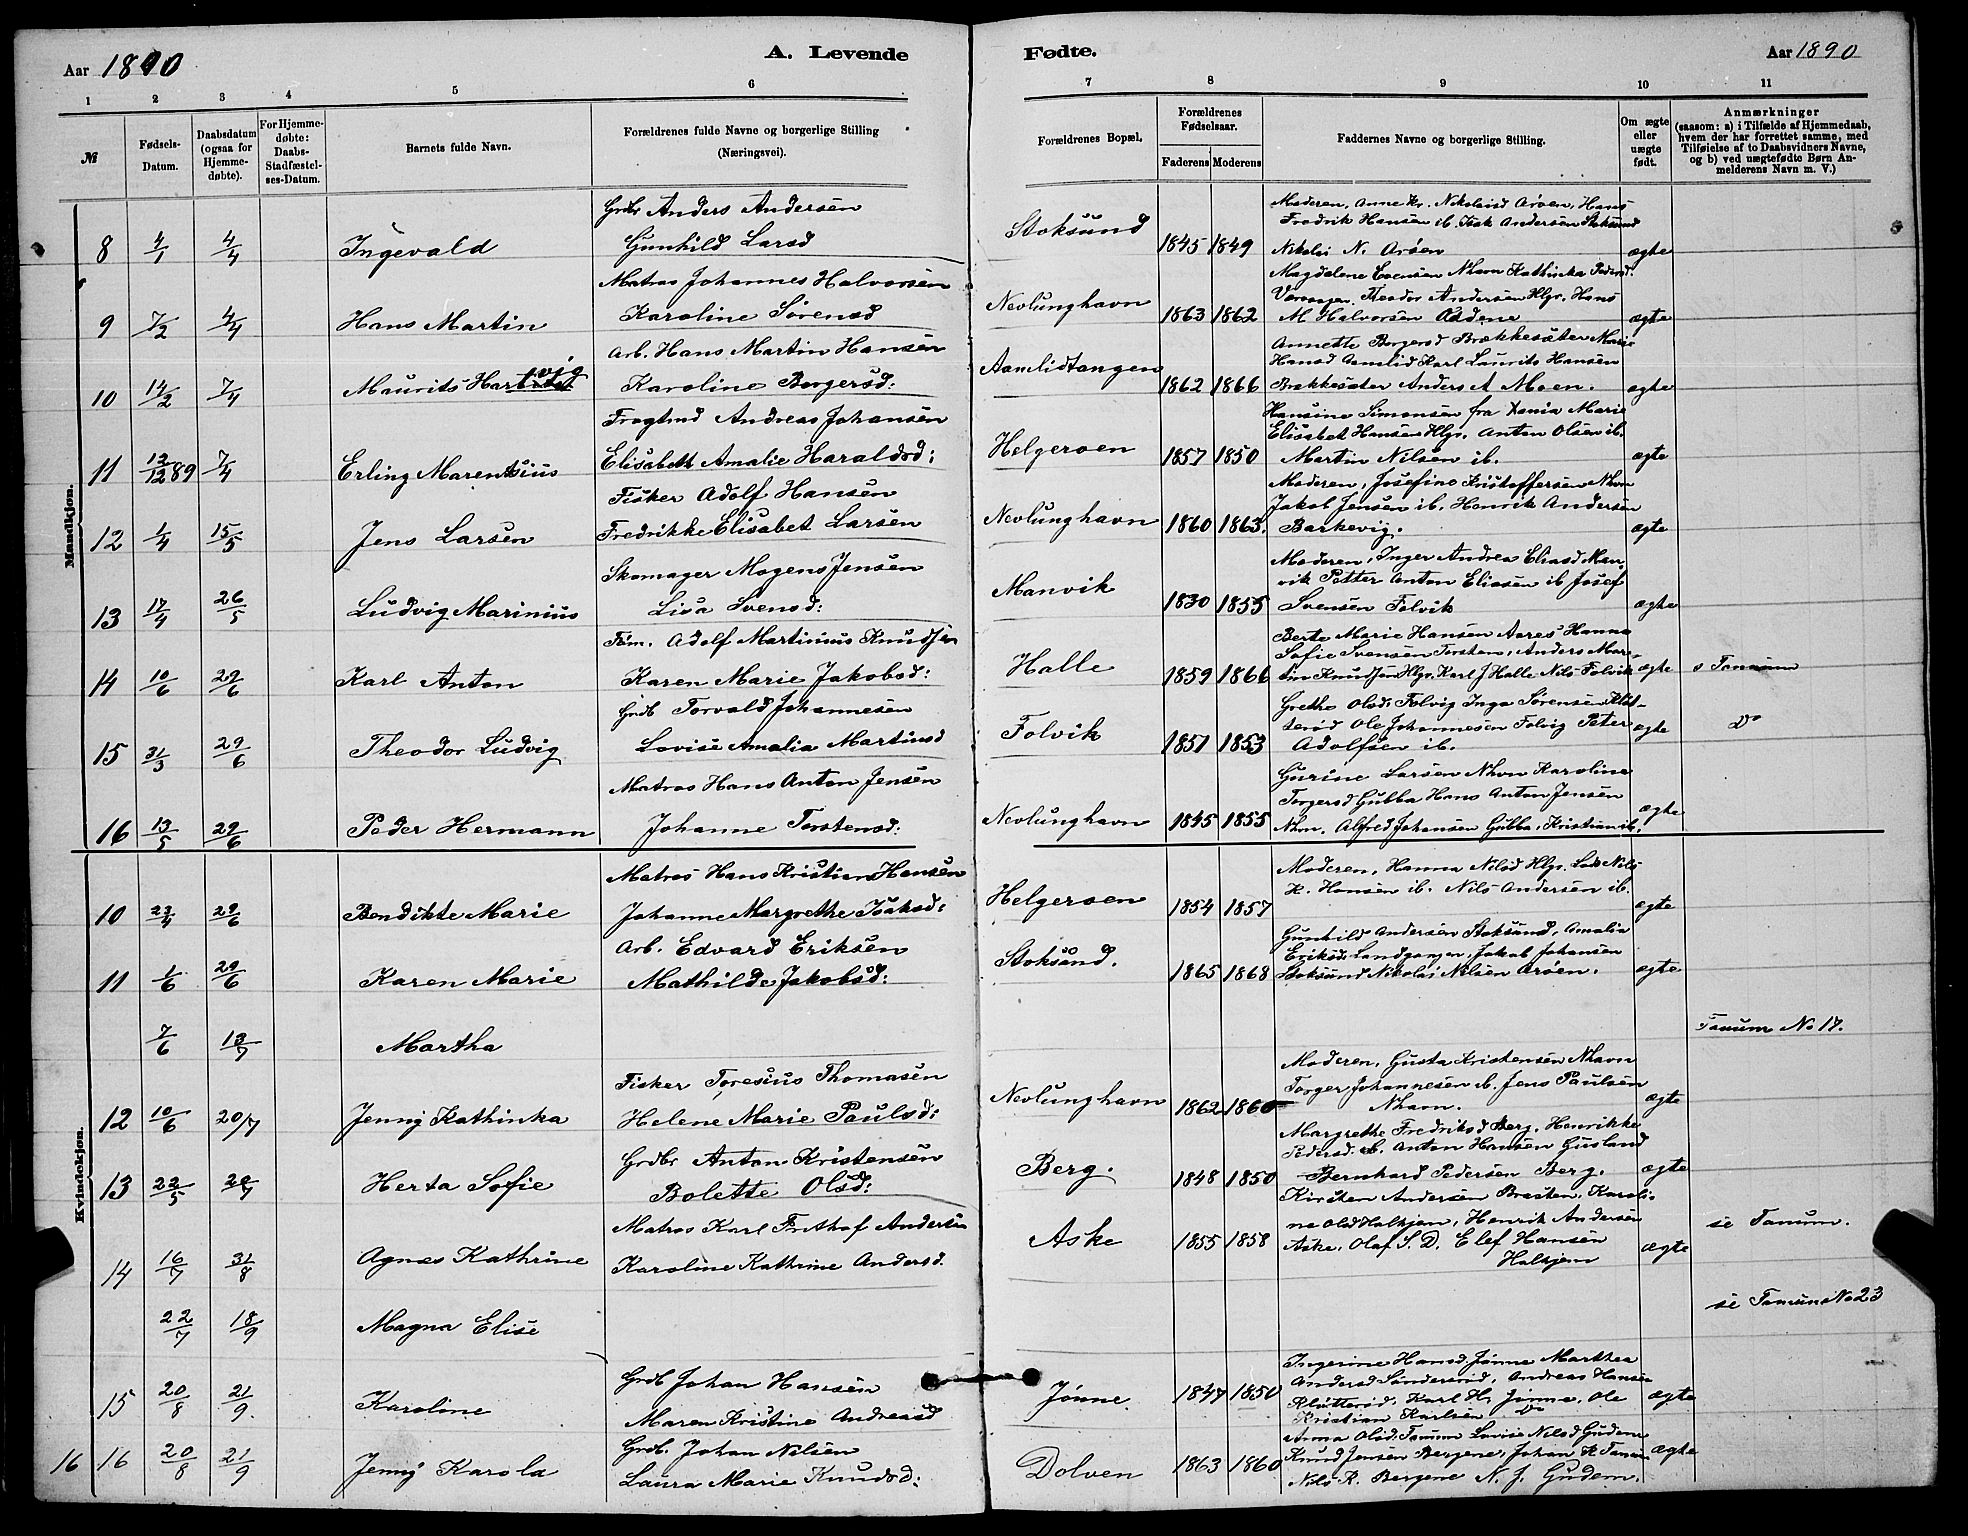 Aar 1890
A. Levende
Fødte.
Aar 1890
1 2 3 4 5 6 7 8 9 10 11
№
Fødsels-Datum.
Daabsdatum (ogsaa for Hjemme-døbte).
For Hjemme-døbte: Daabs-Stadfæstel-ses-Datum.
Barnets fulde Navn.
Forældrenes fulde Navne og borgerlige Stilling (Næringsvei).
Forældrenes Bopæl.
Forældrenes Fødselsaar.
Faderens Moderens
Faddernes Navne og borgerlige Stilling.
Om ægte eller uægte født.
Anmærkninger
(saasom: a) i Tilfælde af Hjemmedaab, hvem der har forrettet samme, med Tilføielse af to Daabsvidners Navne, og b) ved uægtefødte Børn An-melderens Navn m. V.)
Mandkjøn.
8 4/1 4/4 Ingevald
Grdbr Anders Andersen
Gunhild Larsd
Stoksund 1845 1849
Moderen, Anne Kr. Nikolaisd Arøen, Hans
Fredrik Hansen ib. Isak Andersen Stoksund
Nikolai N. Arøen
ægte
9 7/2 4/4 Hans Martin
Matros Johannes Halvorsen
Karoline Sørensd
Nevlunghavn 1863 1862
Magdelene Evensen Nhavn Kathinka Pedersd.
Theodor Andersen Hlgr. Hans
M Halvorsen Oddene
ægte
10 14/2 7/4 Maurits Hartvig
Arb. Hans Martin Hansen
Karoline Borgersd:
Aamlidtangen 1862 1866
Annette Borgersd Brækkesæter Marie
Hansd Aamlid Karl Laurits Hansen
Brækkesæter Anders A Moen.
ægte
11 12/12 89 7/4 Erling Marentsius
Fragtmd Andreas Johansen
Elisabeth Amalie Haraldsd:
Helgeroen 1857 1850
Hansine Simonsen fra Xania Marie
Elisabet Hansen Hlgr. Anton Olsen ib.
Martin Nilsen ib.
ægte
12 1/4 15/5 Jens Larsen
Fisker Adolf Hansen
Fredrikke Elisabet Larsen
Nevlunghavn 1860 1863.
Moderen, Josefine Kristoffersen Nhvn
Jakob Jensen ib. Henrik Andersen
Barkevig.
ægte
13 17/4 26/5 Ludvig Marinius
Skomager Mogens Jensen
Lisa Svensd:
Manvik 1830 1855
Moderen, Inger Andrea Eliasd Man-
vik Petter Anton Eliasen ib. Josef
Svensen Folvik
ægte
14 10/6 29/6 Karl Anton
Tøm. Adolf Martinius Knudsen
Karen Marie Jakobsd:
Halle 1859 1866
Berte Marie Hansen Aares Hanna
Sofie Svensen Torsten, Anders Mar-
tin Knudsen Hlgr. Karl J Halle Nils Folvik
ægte
s Tanum
15 31/3 29/6 Theodor Ludvig
Grdb Torvald Johannesen
Lovise Amalia Martinsd
Folvik 1857 1853
Grethe Olsd: Folvig Inga Sørensen Klåt-
terød Ole Johannesen Folvig Peter
Adolfsen ib.
ægte
Do
16 13/5 29/6 Peder Hermann
Matros Hans Anton Jensen
Johanne Torstensd:
Nevlunghavn 1845 1855
Gurine Larsen Nhvn Karoline
Torgersd Gubba Hans Anton Jensen
Nhvn. Alfred Johansen Gubba, Kristian ib.
ægte
Kvindekjøn.
10 23/4 29/6 Bendikte Marie
Matros Hans Kristian Hansen
Johanne Margrethe Isaksd:
Helgeroen 1854 1857
Moderen, Hanna Nilsd Hlgr. Lods Nils
H. Hansen ib. Nils Andersen ib.
ægte
11 1/6 29/6 Karen Marie
Arb. Edvard Eriksen
Mathilde Jakobsd:
Stoksund. 1865 1868
Gunhild Andersen Stoksund, Amalia
Eriksd: Landgangen, Jakob Johansen
Stoksund Nikolai Nilsen Arøen.
ægte
7/6 13/7 Martha
Tanum No 17.
12 10/6 20/7 Jenny Kathinka
Fisker Toresius Thomasen
Helene Marie Paulsd:
Nevlunghavn 1862 1860
Moderen, Gusta Kristensen Nhavn
Torger Johannesen ib. Jens Paulsen
Nhavn.
ægte
13 22/5 20/7 Herta Sofie
Grdbr Anton Kristensen
Bolette Olsd:
Berg. 1848 1850
Margrethe Fredriksd Berg. Henrikke
Pedersd. ib. Anton Hansen Gusland
Bernhard Pedersen Berg.
ægte
14 16/7 31/8 Agnes Kathrine
Matros Karl Frithof Andersen
Karoline Kathrine Andersd.
Aske 1855 1858
Kirsten Andersen Brasten. Karoli-
ne Olsd Halkjem, Henrik Andersen
Aske. Olaf S. D. Elef Hansen
Halkjem
ægte
se Tanum.
22/7 18/9 Magna Elise
se Tanum No 23
15 20/8 21/9. Karoline
Grdb Johan Hansen
Maren Kristine Andreasd
Jønne 1847 1850
Ingerine Hansd. Jønne Marthea
Andersd Søndersrød, Andreas Hansen
Klåtterød. Karl H. Jønne. Ole
Kristian Karlsen Do
ægte
16 16 20/8 21/9 Jenny Karola
Grdb. Johan Nilsen
Laura Marie Knudsd:
Dolven 1863 1860
Anna Olsd. Tanum Lovise Nilsd Gudem
Knud Jensen Bergene, Johan K Tanum
Nils R. Bergene N. J. Gudem.
ægte